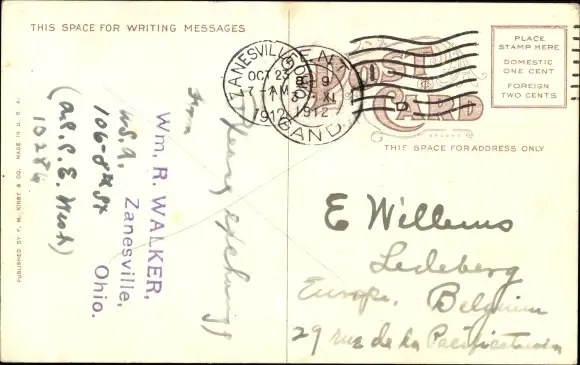 THIS SPACE FOR WRITING MESSAGES
POST
CARD
PLACE
STAMP HERE
DOMESTIC
ONE CENT
FOREIGN
TWO CENTS
THIS SPACE FOR ADDRESS ONLY
ZANESVILLE
OCT 23
7-AM
1912
GENT
1912
GAND
From
Wm. R. WALKER,
Zanesville,
Ohio.
U.S.A.
106-8th St
10284
PUBLISHED BY F. M. KIRBY & CO. MADE IN U. S. A.
E Willems
Ledeberg
Europe, Belgium
29 rue de la